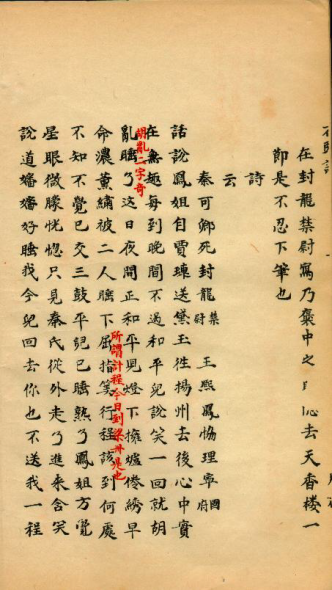 在封龍禁尉寫乃褒中之去天香樓一
節是不忍下筆也
詩
云
秦可卿死封龍禁尉　王熙鳳協理寧國府
話說鳳姐自賈璉送黛玉往揚州去後心中實
在無趣每到晚間不過和平兒說笑一回就胡
胡亂二字奇
亂睡了這日夜間正和平兒燈下擁爐倦綉早
命濃薰繡被二人睡下屈指筭行程該到何處
所謂計程今日到梁州是也
不知不覺已交三鼓平兒已睡熟了鳳姐方覺
星眼微朦恍惚只見秦氏從外走了進來含笑
說道嬸嬸好睡我今兒回去你也不送我一程